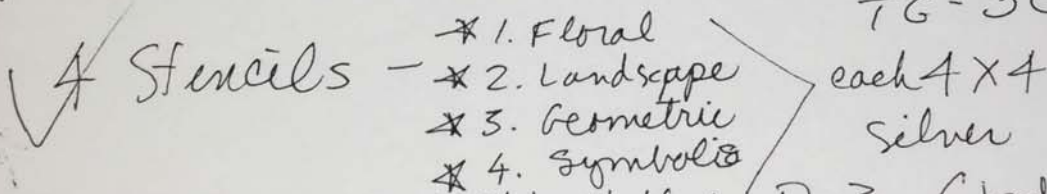 4 Stencils -
* 1. Floral
* 2. Landscape
* 3. Geometric
* 4. Symbolis
each 4 X 4
silver